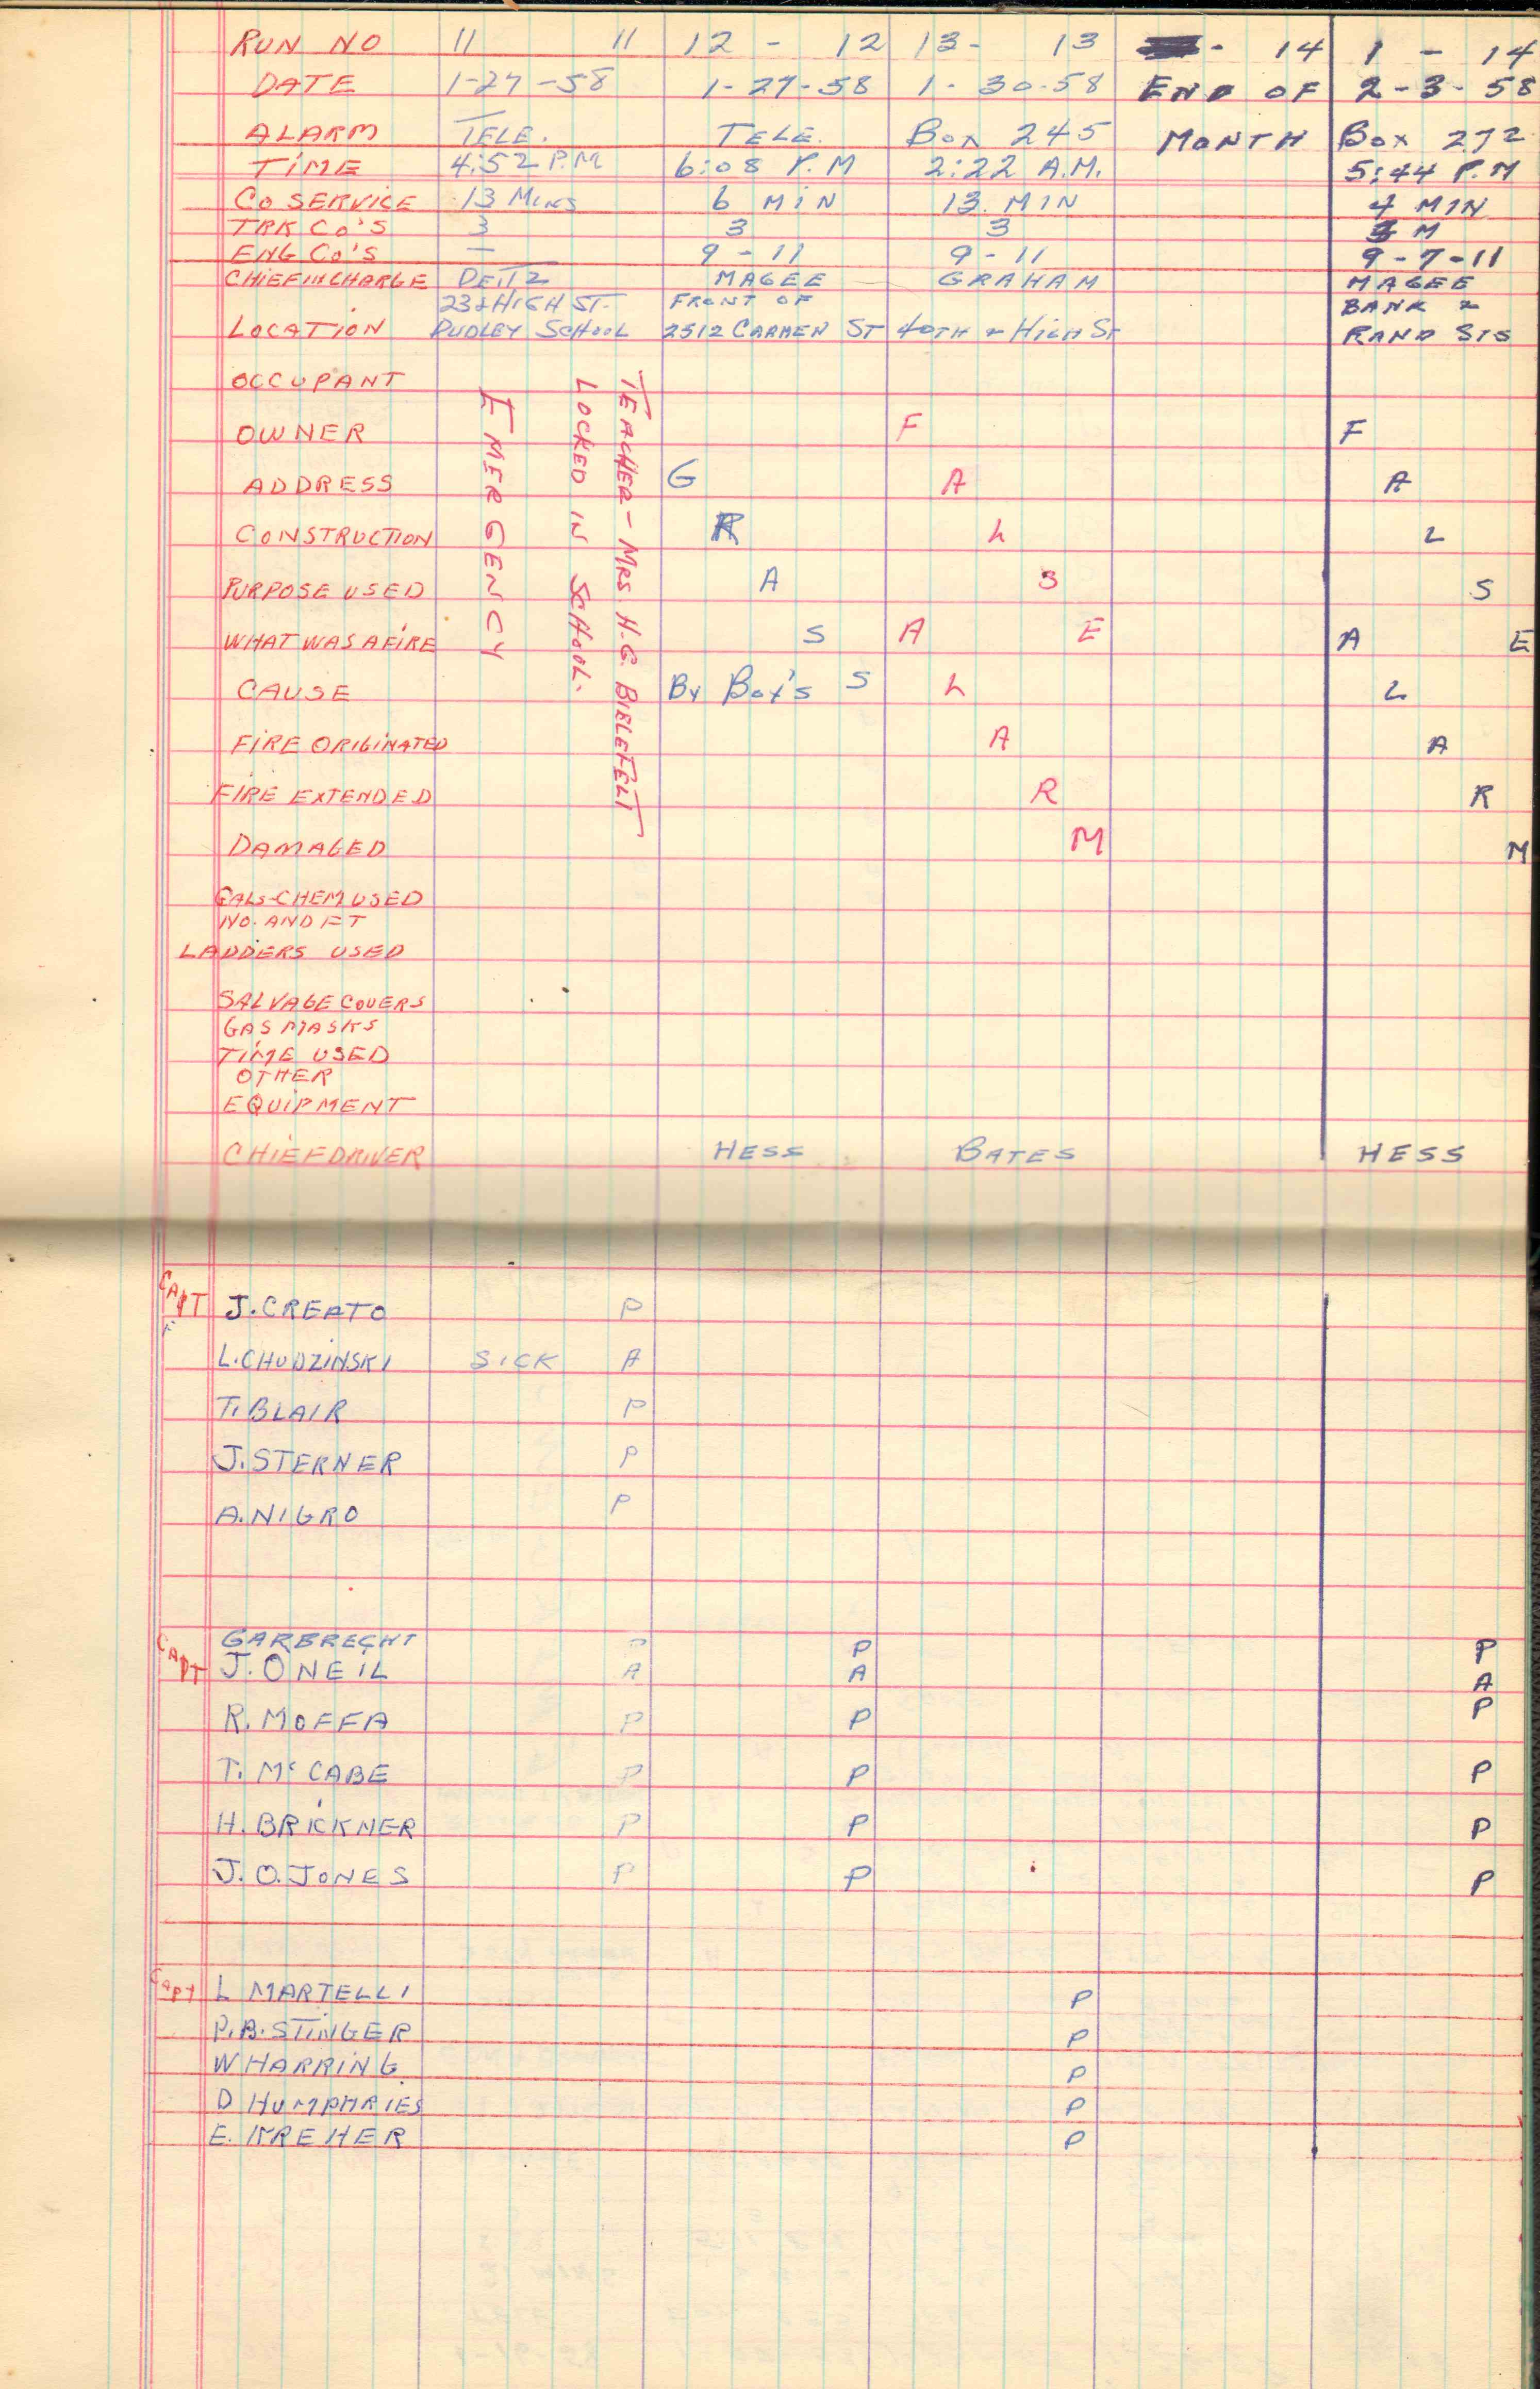 RUN NO 11 11 12 - 12 13- 13 - 14 1 - 14
DATE 1-27-58 1-27-58 1-30-58 END OF 2-3-58
ALARM TELE. TELE. BOX 245 MONTH BOX 272
TIME 4:52 P.M 6:08 P.M 2:22 A.M. 5:44 P.M
CO SERVICE 13 MINS 6 MIN 13 MIN 4 MIN
TRK CO'S 3 3 3 3 M
ENG CO'S — 9-11 9-11 9-7-11
CHIEF IN CHARGE DEITZ MAGEE GRAHAM MAGEE
23 & HIGH ST. FRONT OF BANK &
LOCATION DUDLEY SCHOOL 2512 CARMEN ST 40TH & HIGH ST RAND STS
OCCUPANT
OWNER F F
ADDRESS G A A
CONSTRUCTION R L L
PURPOSE USED A S S
WHAT WAS A FIRE S A E A E
CAUSE BY BOY'S S L L
FIRE ORIGINATED A A
FIRE EXTENDED R R
DAMAGED M M
EMERGENCY
LOCKED IN SCHOOL.
TEACHER - MRS. H.G. BIELEFELT
GALS-CHEM USED
NO. AND FT
LADDERS USED
SALVAGE COVERS
GAS MASKS
TIME USED
OTHER
EQUIPMENT
CHIEF DRIVER HESS BATES HESS
CAPT J. CREATO P
L. CHUDZINSKI SICK A
T. BLAIR P
J. STERNER P
A. NIGRO P
GARBRECHT P P P
CAPT J. ONEIL A A A
R. MOFFA P P P
T. McCABE P P P
H. BRICKNER P P P
J. O. JONES P P P
CAPT L MARTELLI P
P.B. STINGER P
W HARRING P
D HUMPHRIES P
E. KREHER P